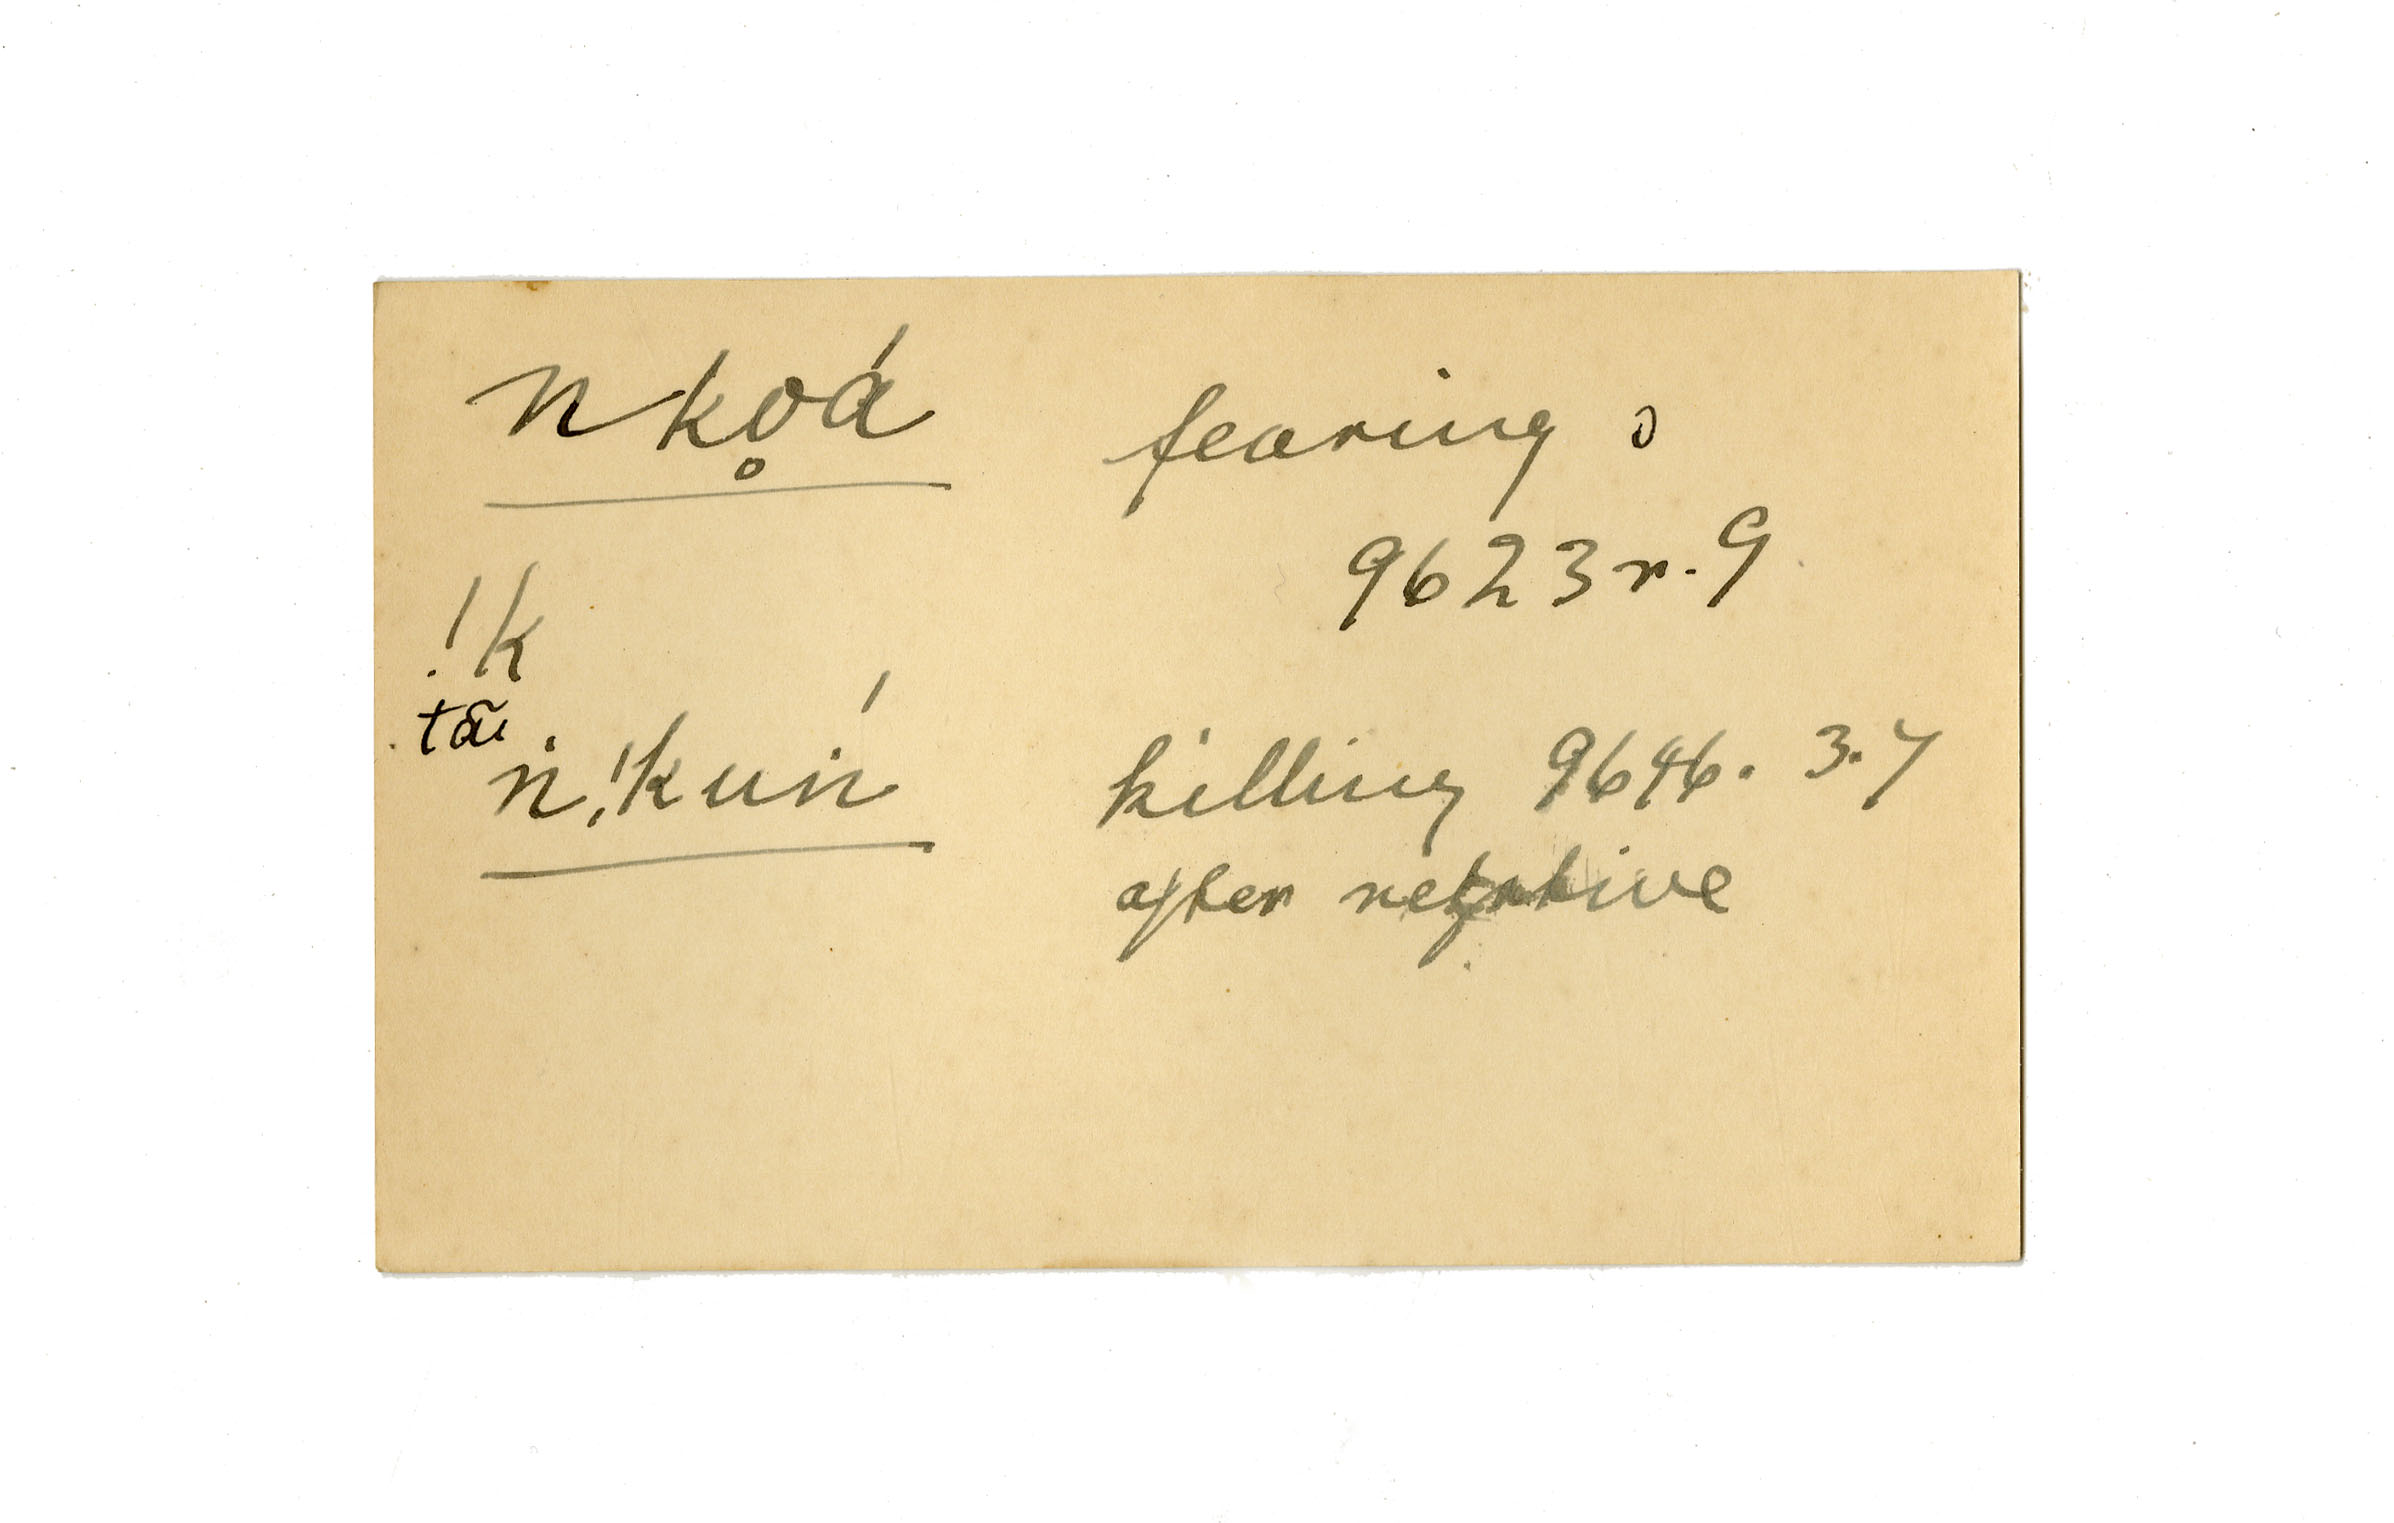 nko̥á fearing ɔ
9623 r. 9
!k
tā
ṅ!kuṅ́ killing 9646. 3.7
after negative